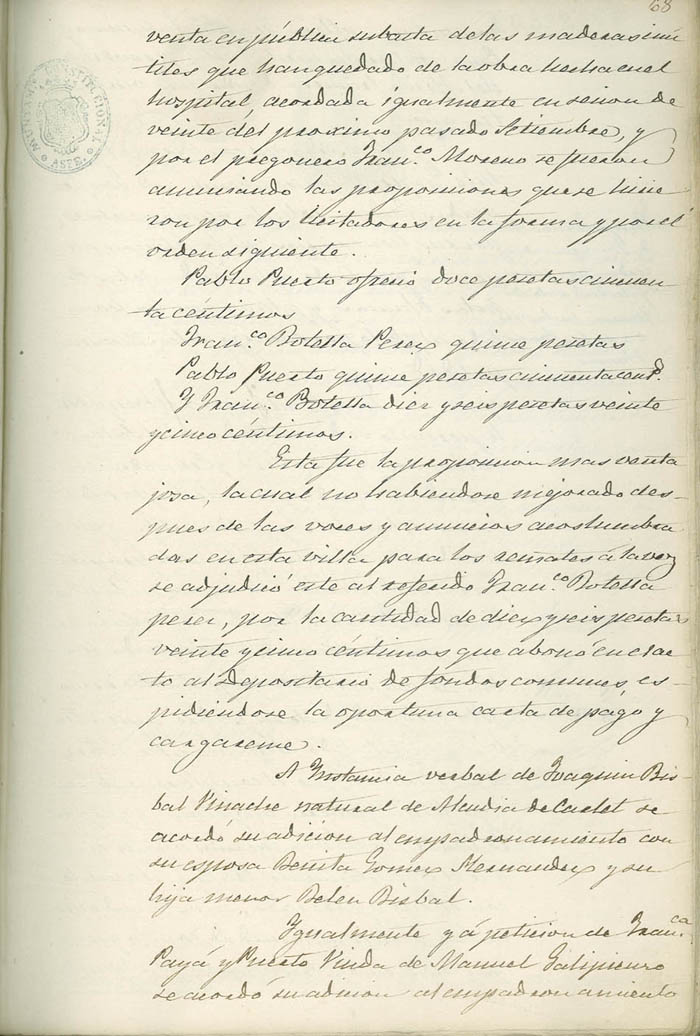 68
venta en pública subasta de las maderas inú
tiles que han quedado de la obra hecha en el
hospital, acordada igualmente en sesion de
veinte del proximo pasado Setiembre, y
por el pregonero Fran.co Moreno se fueron
anunciando las proposiciones que se hicie
ron por los licitadores en la forma y por el
orden siguiente.
Pablo Puerto ofreció doce pesetas cincuen
ta céntimos
Fran.co Botella Perez quince pesetas
Pablo Puerto quince pesetas cincuenta cent.s
Y Fran.co Botella diez y seis pesetas veinte
y cinco céntimos.
Esta fue la proposicion mas venta
josa, la cual no habiendose mejorado des-
pues de las voces y anuncios acostumbra
dos en esta villa para los remates á la voz
se adjudicó este al referido Fran.co Botella
perez, por la cantidad de diez y seis pesetas
veinte y cinco céntimos que abonó en el ac
to al Depositario de fondos comunes, es-
pidiendose la oportuna carta de pago y
cargareme.
A Instancia verbal de Joaquin Bis-
bal Vinache natural de Alcudia de Carlet se
acordó su adicion al empadronamiento con
su esposa Benita Gomez Hernandez y su
hija menor Belen Bisbal.
Igualmente y á peticion de Fran.ca
Payá y Puerto Viuda de Manuel Galipienzo
se acordó su adicion al empadronamiento
CONSTITUCIONAL
ASPE.